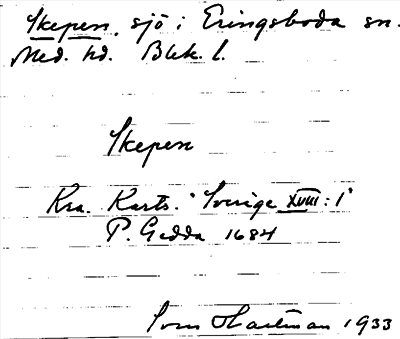 Skepen, sjö i Eringsboda sn.
Med. hd. Blek. l.
Skepen
Kra. Karts. "Sverige XVIII:1"
P. Gedda 1684
Sven Hartman 1933